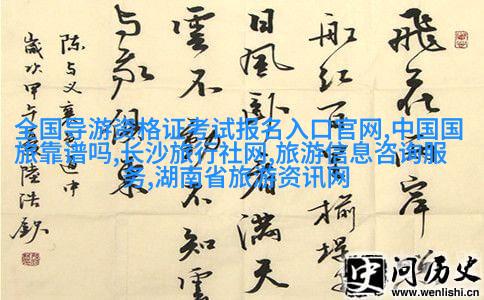 飛花兩岸
船紅百里榆堤
日風卧看滿天
雲不動不知雲
與我俱東
陳與義襄邑道中
歲次甲午夏陸浩
全国导游资格证考试报名入口官网,中国国
旅靠谱吗,长沙旅行社网,旅游信息咨询服
务,湖南省旅游资讯网
问历史
www.wenlishi.cn